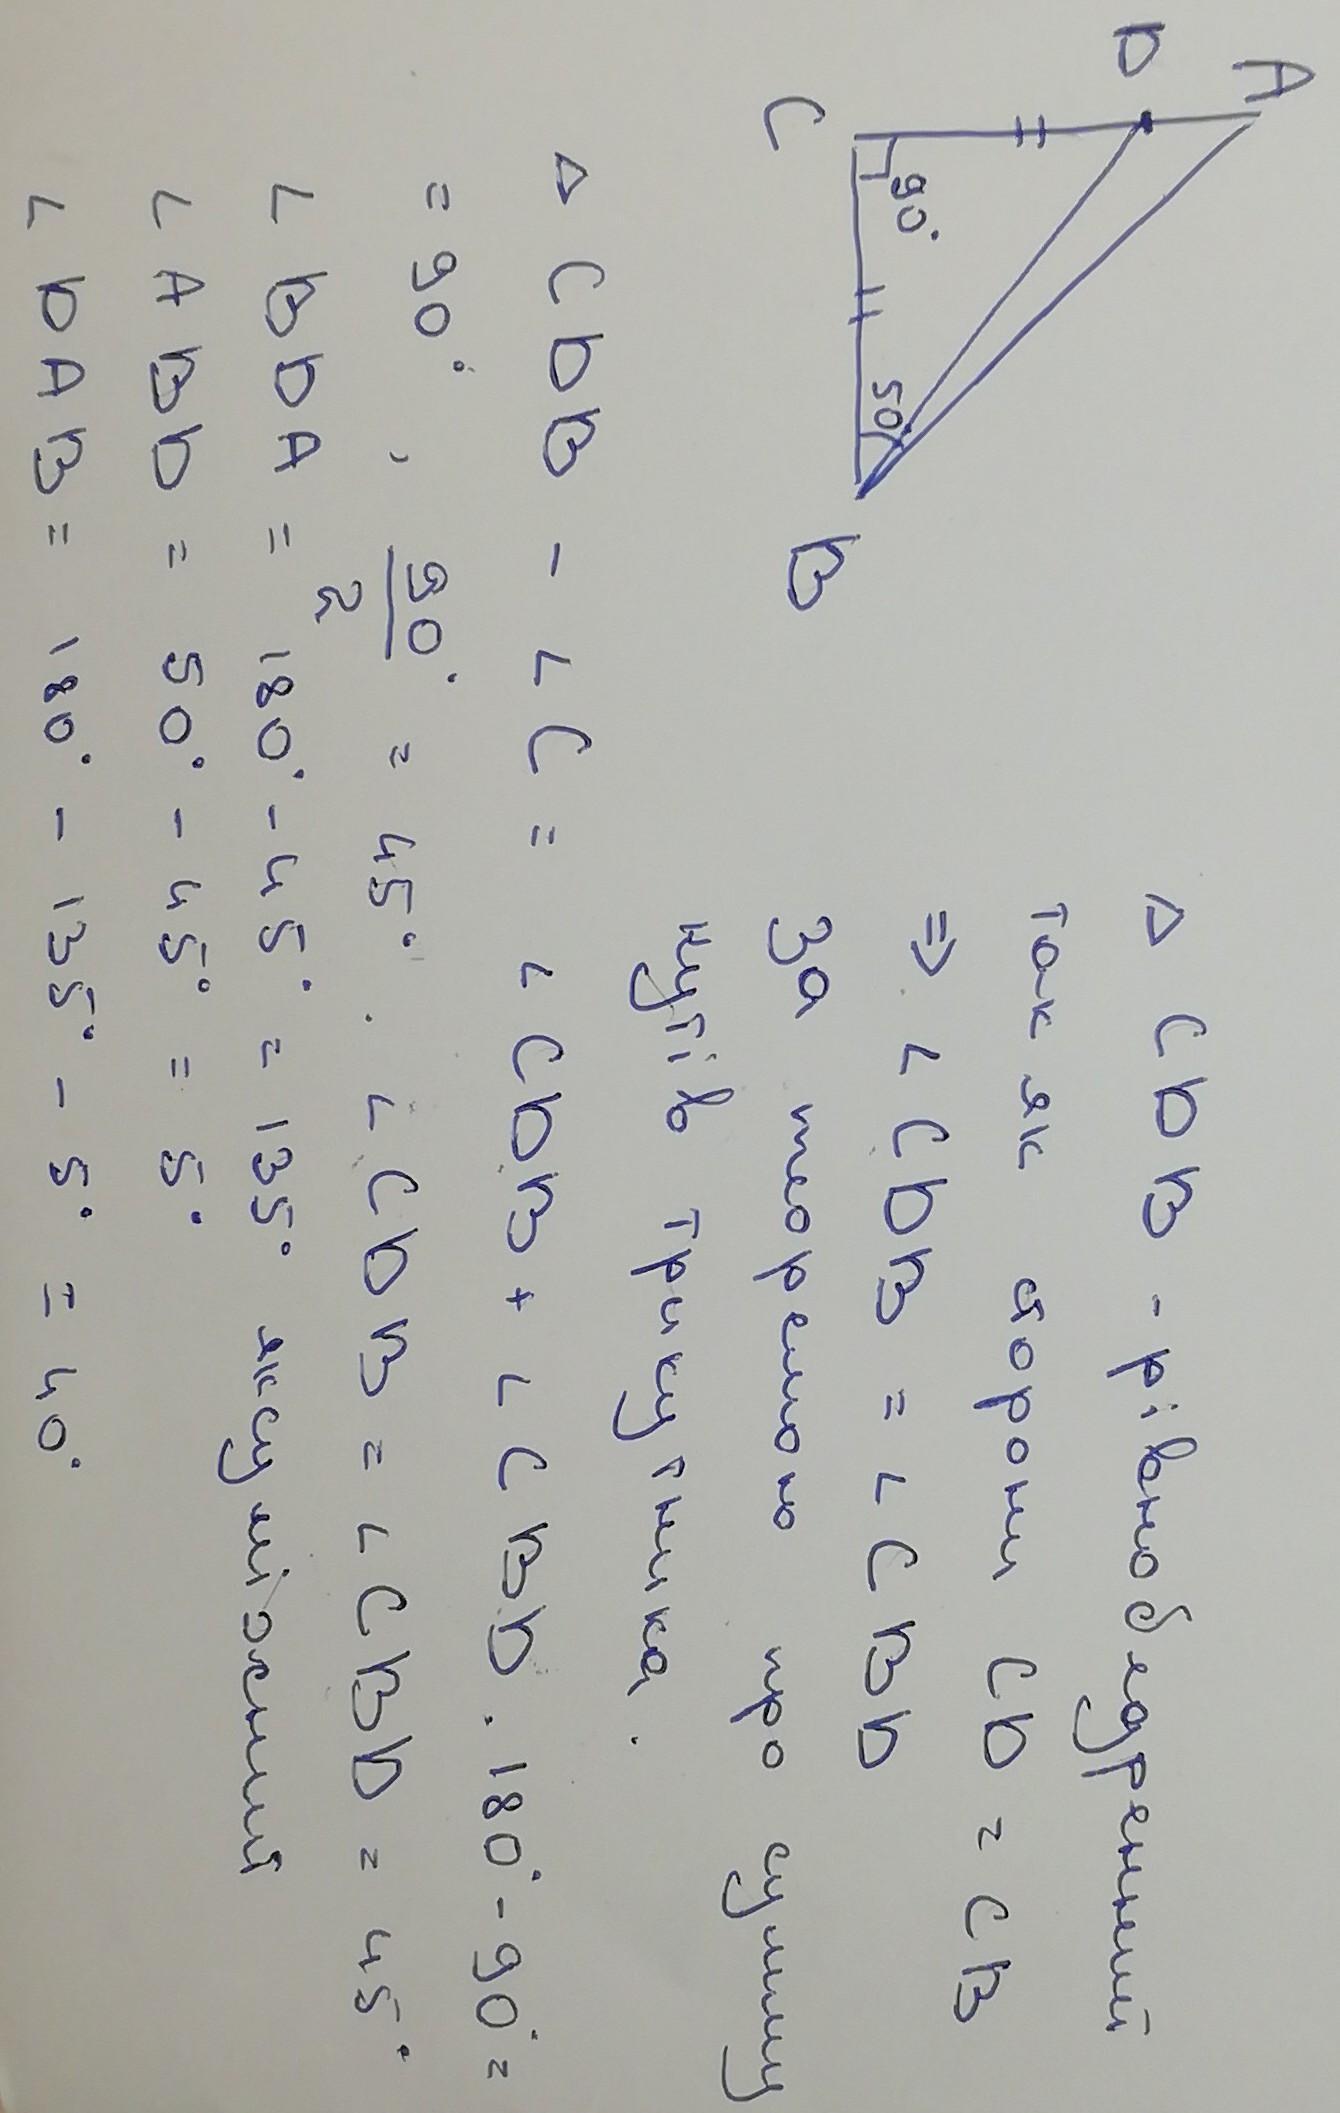 A
D
C
90°
50
B
Δ CDB - рівнобедренний
так як сорони CD = CB
=> ∟ CDB = ∟ CBD
За теоремою про сумму
кутів трикутника.
Δ CDB - ∟ C = ∟ CDB + ∟ CBD. 180° - 90° =
= 90°, 90°/2 = 45°. ∟ CDB = ∟ CBD = 45°
∟ BDA = 180° - 45° = 135° як суміжний
∟ ABD = 50° - 45° = 5°
∟ DAB = 180° - 135° - 5° = 40°